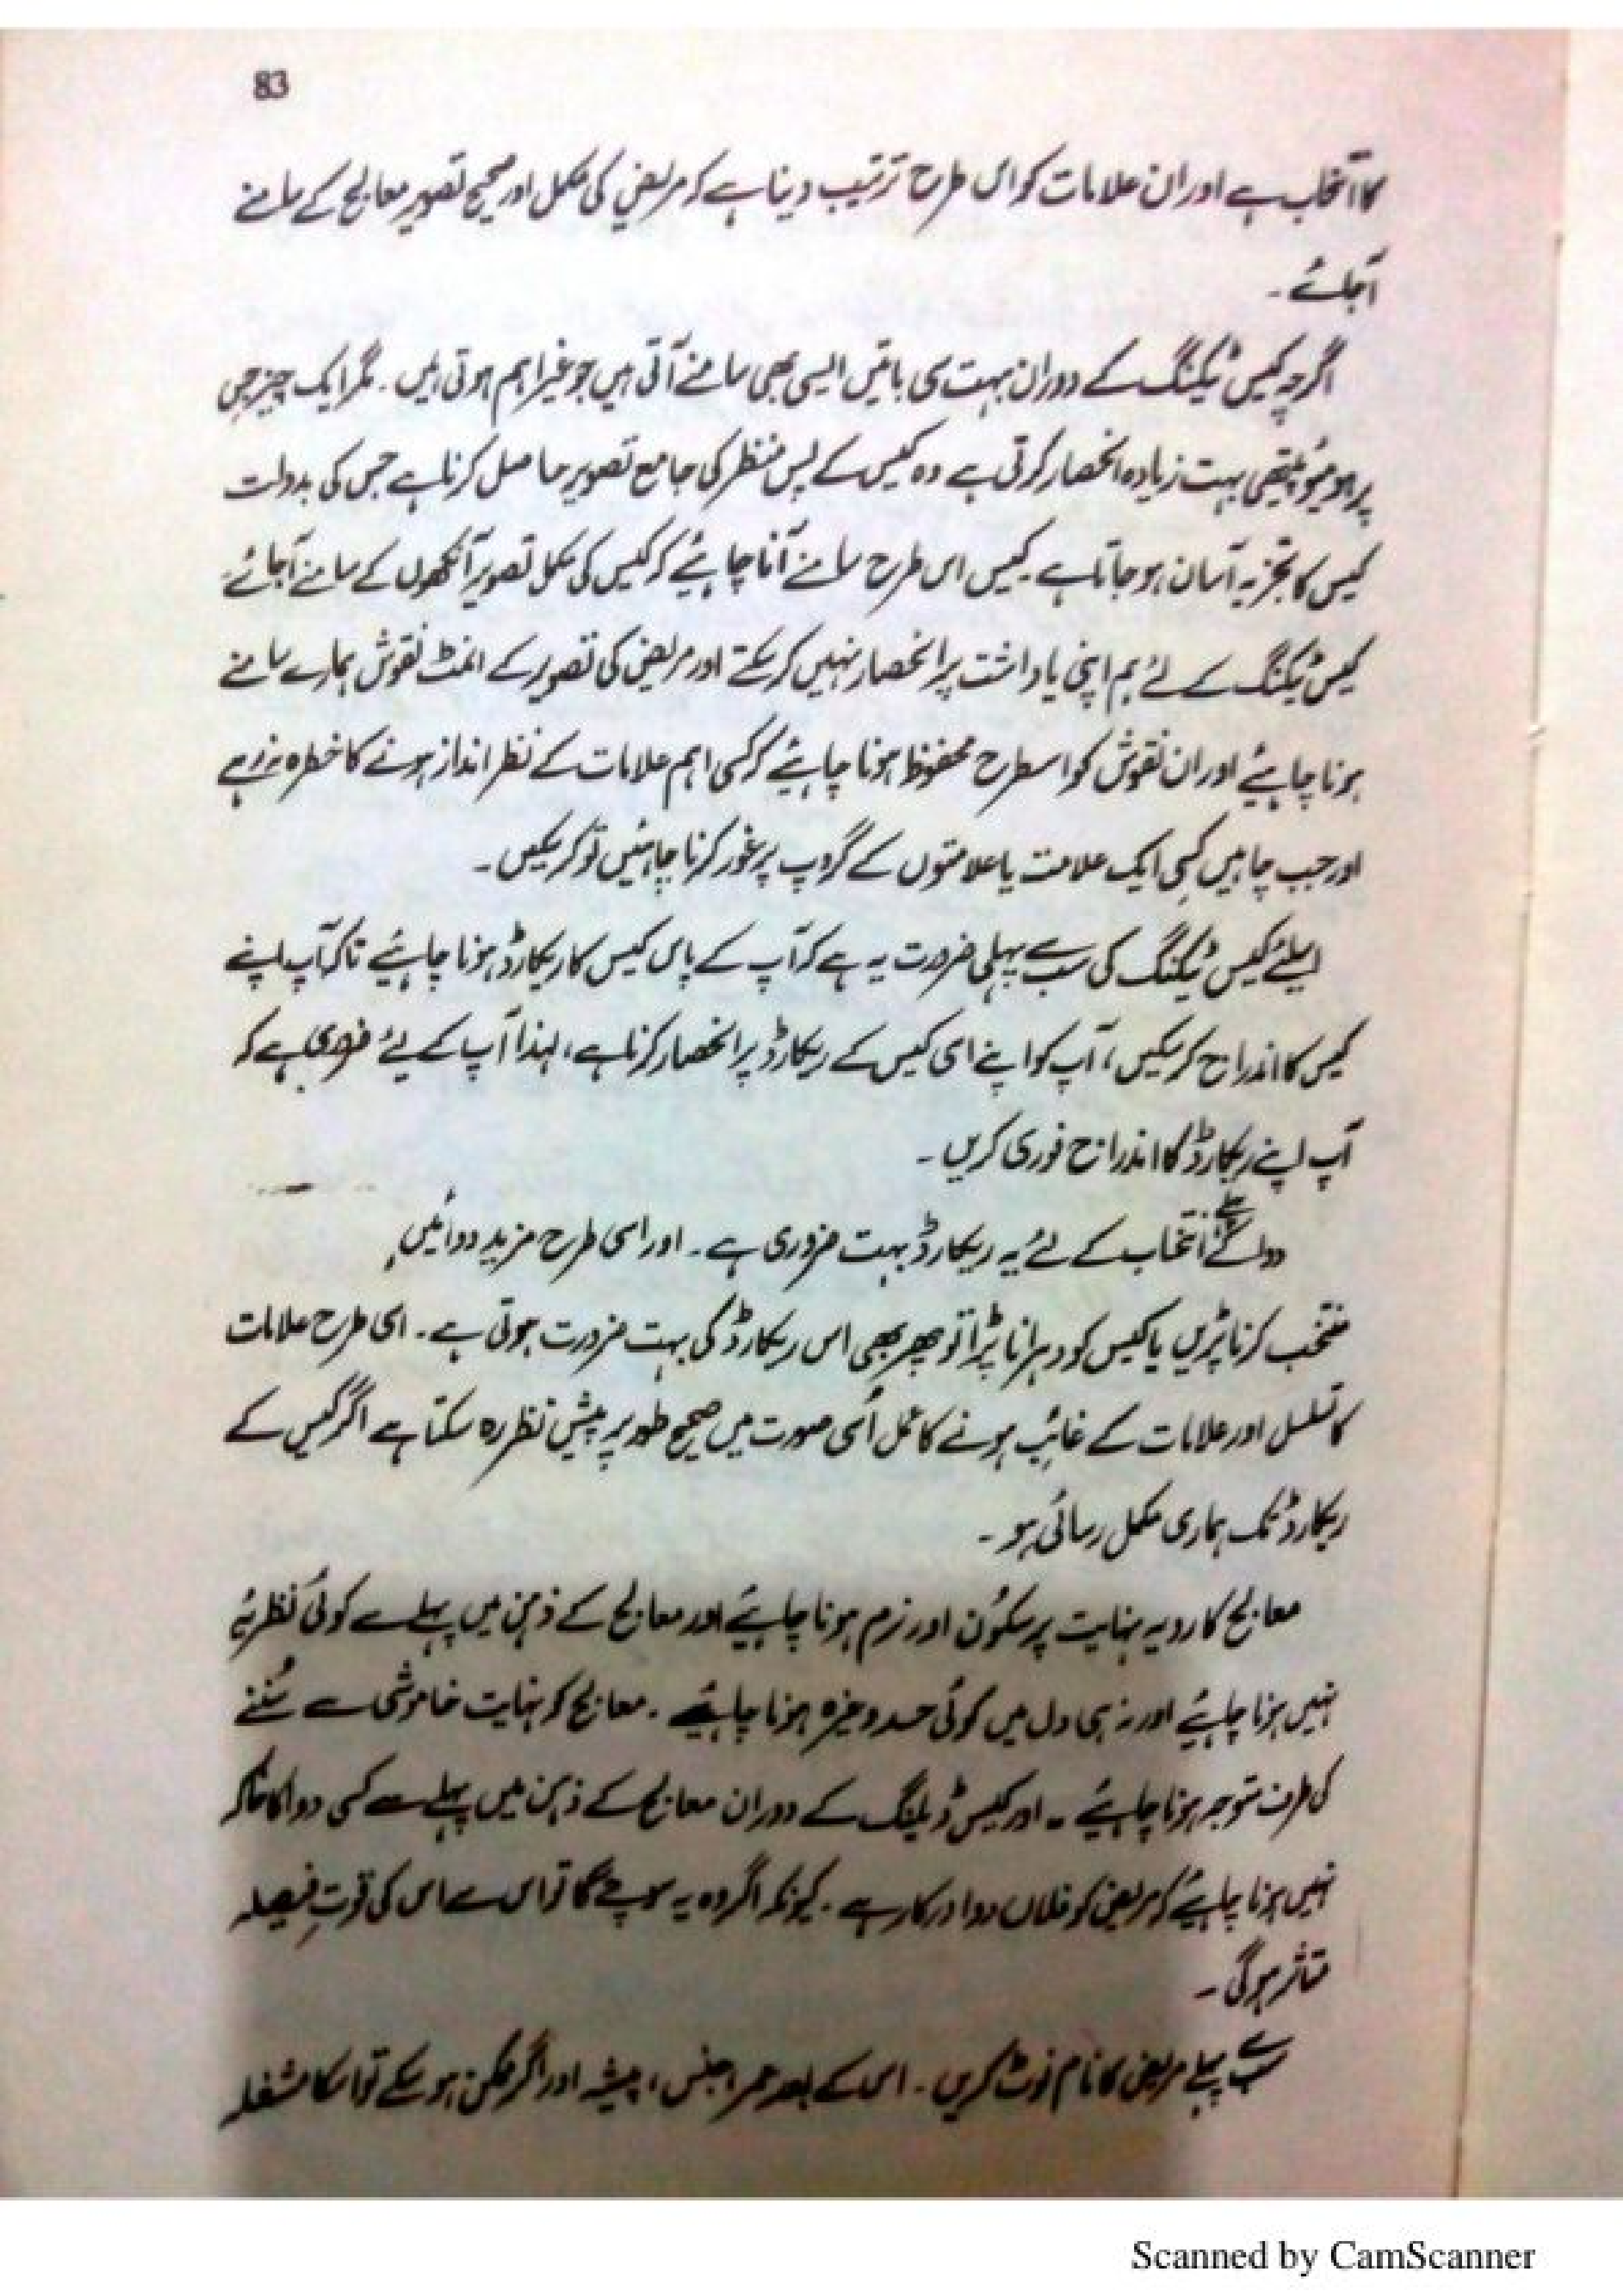 83
کا انتخاب ہے اور ان علامات کو اس طرح ترتیب دینا ہے کہ مریض کی مکمل اور صحیح تصویر معالج کے سامنے
آجائے ۔
اگرچہ کیس ٹیکنگ کے دوران بہت سی باتیں ایسی بھی سامنے آتی ہیں جو غیر اہم ہوتی ہیں ۔ مگر ایک چیز جس
پر ہومیوپیتھی بہت زیادہ انحصار کرتی ہے وہ کیس کے پس منظر کی جامع تصویر حاصل کرنا ہے جس کی بدولت
کیس کا تجزیہ آسان ہو جاتا ہے ۔ کیس اس طرح سامنے آنا چاہئے کہ کیس کی مکمل تصویر آنکھوں کے سامنے آجائے ۔
کیس ٹیکنگ کے لئے ہم اپنی یاداشت پر انحصار نہیں کر سکتے اور مریض کی تصویر کے انمٹ نقوش ہمارے سامنے
ہونا چاہئے اور ان نقوش کو اسطرح محفوظ ہونا چاہئے کہ کسی اہم علامات کے نظر انداز ہونے کا خطرہ نہ رہے
اور جب چاہیں کسی ایک علامت یا علامتوں کے گروپ پر غور کرنا چاہئیں تو کر سکیں ۔
اسلئے کیس ٹیکنگ کی سب سے پہلی ضرورت یہ ہے کہ آپ کے پاس کیس کا ریکارڈ ہونا چاہئے تاکہ آپ اپنے
کیس کا اندراج کر سکیں ، آپ کو اپنے اسی کیس کے ریکارڈ پر انحصار کرنا ہے ، لہذا آپ کے لئے ضروری ہے کہ
آپ اپنے ریکارڈ کا اندراج فوری کریں ۔
انتخاب کے لئے یہ ریکارڈ بہت ضروری ہے ۔ اور اسی طرح مزید دوائیں
منتخب کرنا پڑیں یا کیس کو دہرانا پڑا تو پھر بھی اس ریکارڈ کی بہت ضرورت ہوتی ہے ۔ اسی طرح علامات
کا تسلسل اور علامات کے غائب ہونے کا عمل اُسی صورت میں صحیح طور پر پیش نظر رہ سکتا ہے اگر کیس کے
ریکارڈ تک ہماری مکمل رسائی ہو ۔
معالج کا رویہ نہایت پرسکُون اور نرم ہونا چاہئے اور معالج کے ذہن میں پہلے سے کوئی نظریہ
نہیں ہونا چاہئے اور نہ ہی دل میں کوئی حسد وغیرہ ہونا چاہئے ۔ معالج کو نہایت خاموشی سے سُننے
کی طرف متوجہ ہونا چاہئے ۔ اور کیس ٹیکنگ کے دوران معالج کے ذہن میں پہلے سے کسی دوا کا خاکہ
نہیں ہونا چاہئے کہ مریض کو فلاں دوا درکار ہے ۔ کیونکہ اگر وہ یہ سوچے گا تو اس سے اس کی قوتِ فیصلہ
متاثر ہوگی ۔
سب سے پہلے مریض کا نام نوٹ کریں ۔ اس کے بعد عمر ، جنس ، پیشہ اور اگر ممکن ہو سکے تو اسکا مشغلہ
Scanned by CamScanner